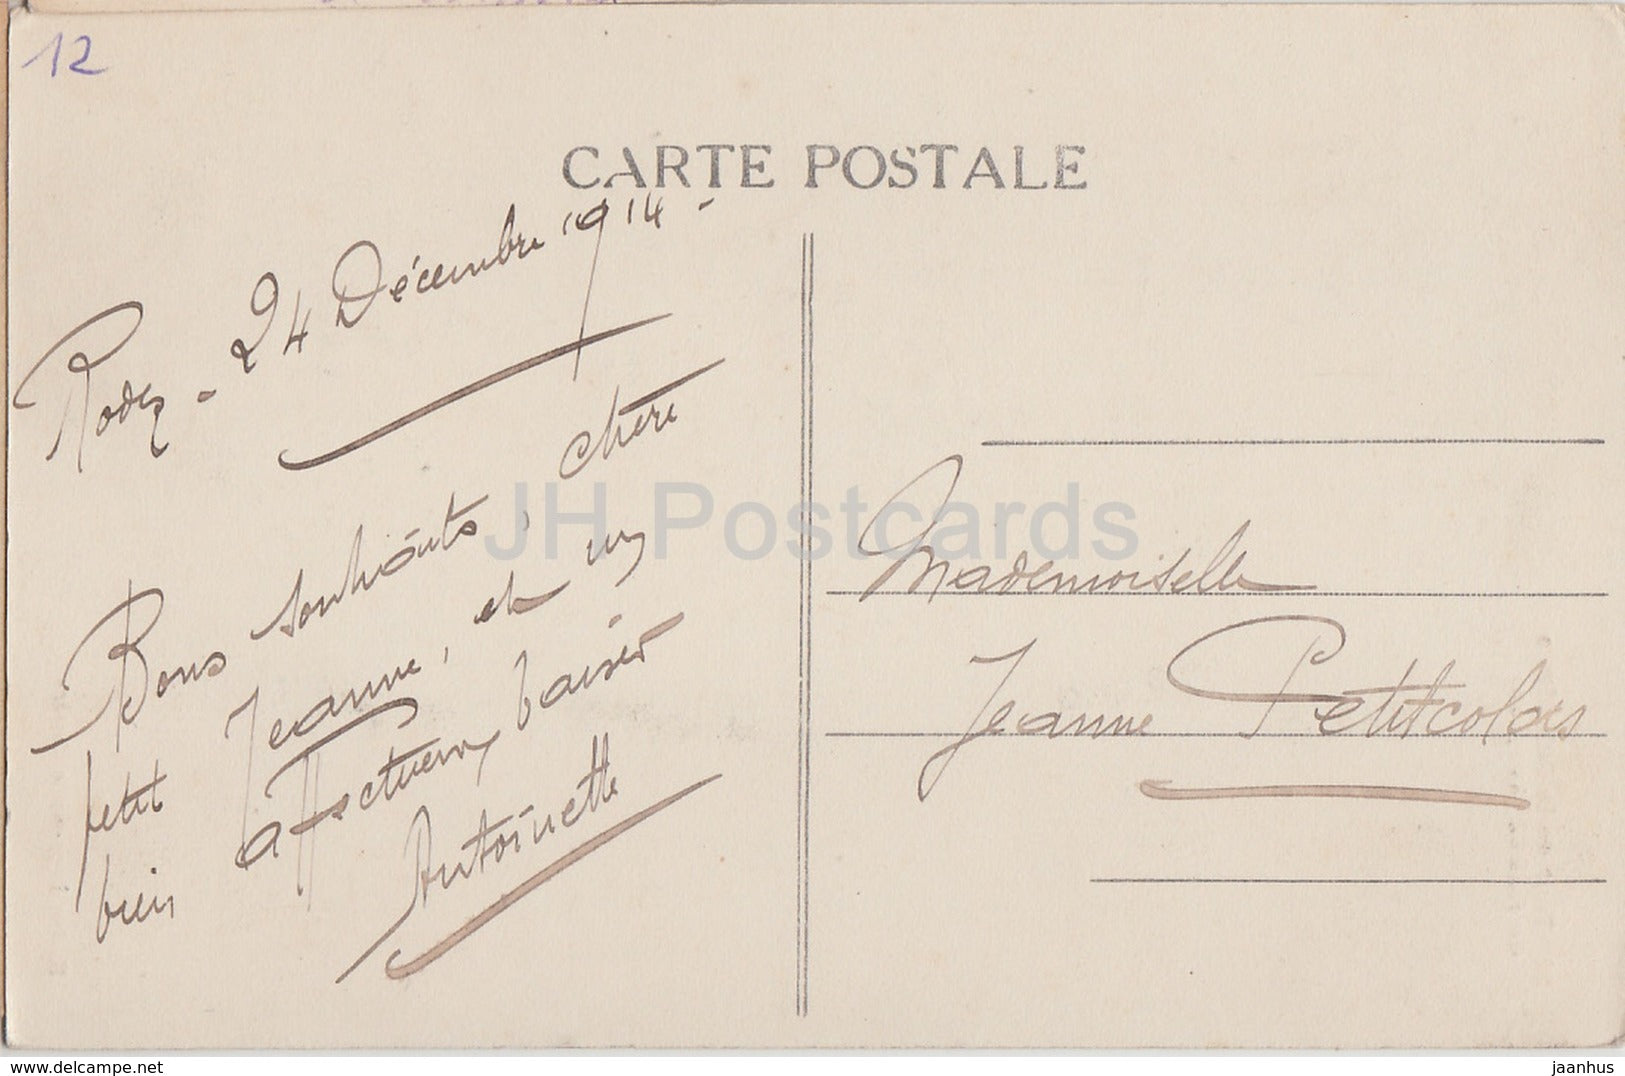 12
CARTE POSTALE
Rodez - 24 Décembre 1914 -
Bons souhaits, chère
petit Jeanne, et un
bien affectueux baiser
Antoinette
Mademoiselle
Jeanne Petitcolas
JH Postcards
delcampe.net
jaanhus